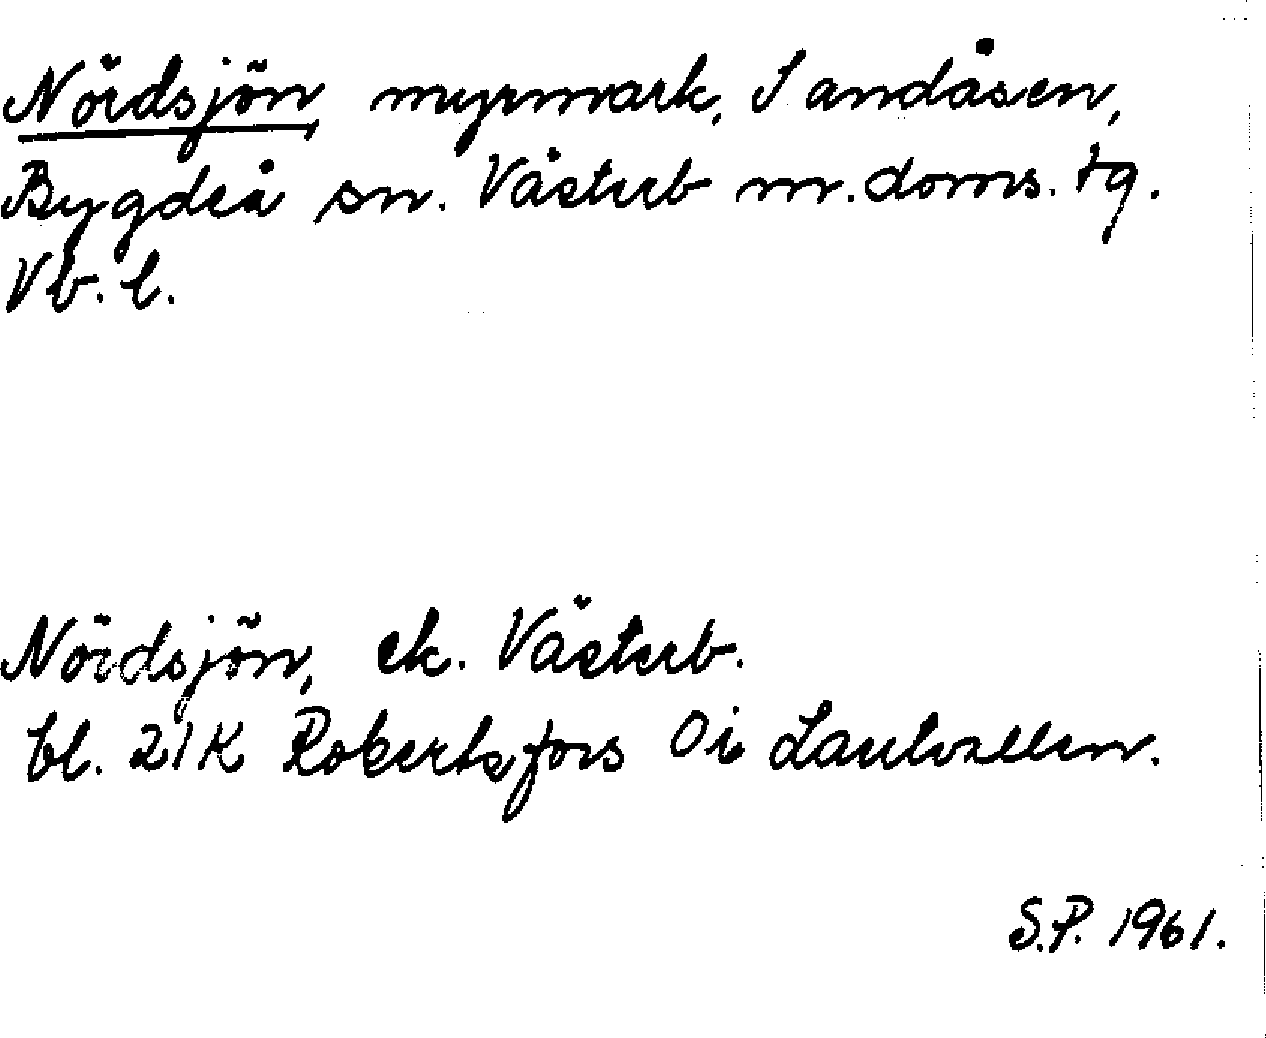 Nördsjön, myrmark, Sandåsen,
Bygdeå sn. Västerb nr. doms. tg.
Vb. l.
Nördsjön, ek. Västerb.
bl. 21K Robertsfors Oi
S.P. 1961.